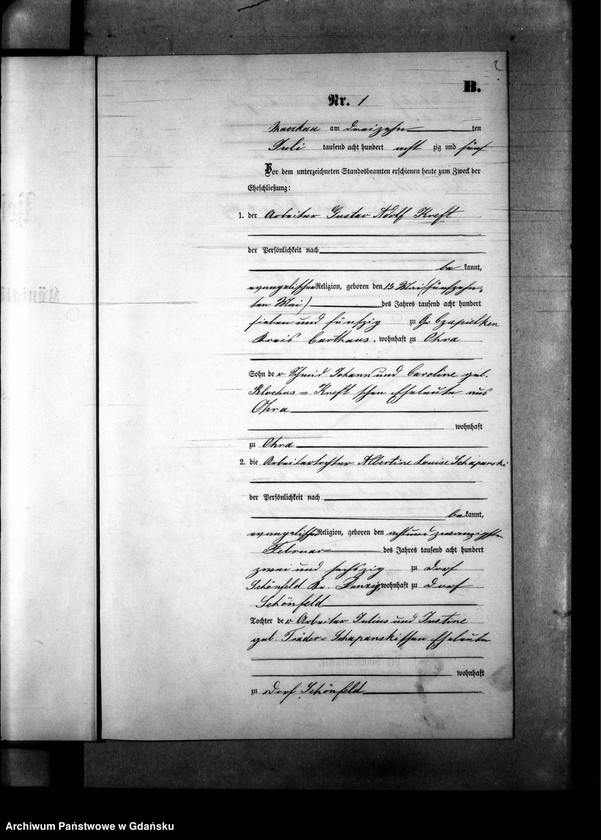 2
B.
Nr. 1
am dreizehn ten
Juli tausend acht hundert acht zig und fünf
Vor dem unterzeichneten Standesbeamten erschienen heute zum Zweck der
Eheschließung:
1. der Arbeiter Gustav Adolf Kreft
der Persönlichkeit nach
be kannt,
evangelischer Religion, geboren den Mai (fünfzehn
ten Mai) des Jahres tausend acht hundert
sieben und fünfzig zu Gr. Czapielken
Kreis Carthaus, wohnhaft zu Ohra
Sohn der Schmid Johann und Caroline geb.
Kreft'schen Eheleute aus
Ohra
wohnhaft
zu Ohra
2. die Arbeitertochter Albertine Louise Schapanski
der Persönlichkeit nach
be kannt,
evangelischer Religion, geboren den acht und zwanzigsten
Februar des Jahres tausend acht hundert
zwei und sechszig zu Dorf
Schönfeld Kr. Danzig wohnhaft zu Dorf
Schönfeld
Tochter der Arbeiter Julius und Justine
geb. Schapanskischen Eheleute
wohnhaft
zu Dorf Schönfeld
Archiwum Państwowe w Gdańsku